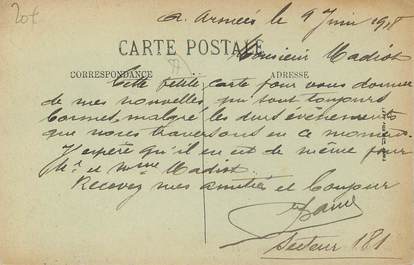 20f
a. Armées le 9 Juin 1918
CARTE POSTALE
Monsieur Madiot
CORRESPONDANCE ADRESSE
Cette petite carte pour vous donner
de mes nouvelles, qui sont toujours
bonnes, malgré les durs événements
que nous traversons en ce moment.
J'espère qu'il en est de même pour
Mr et Mme Madiot.
Recevez mes amitiés et bonjour
Secteur 181